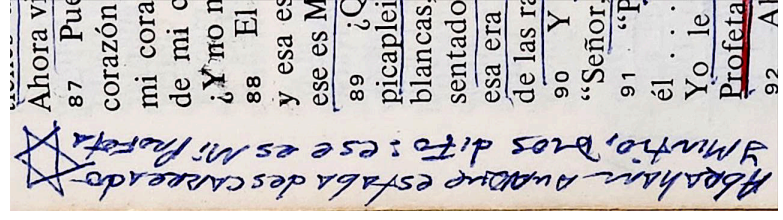 Ahora vi
87 Pue
corazón
mi cora
de mi c
¿Y no n
88 El
y esa es
ese es M
89 ¿Q
picaplei
blancas,
sentado
esa era
de las ra
90 Y
“Señor,
91 “P
él . . .
Yo le
Profeta
92 Al
Abraham aunque estaba descarreado-
y Mintio, Dios diJo: ese es Mi Profeta